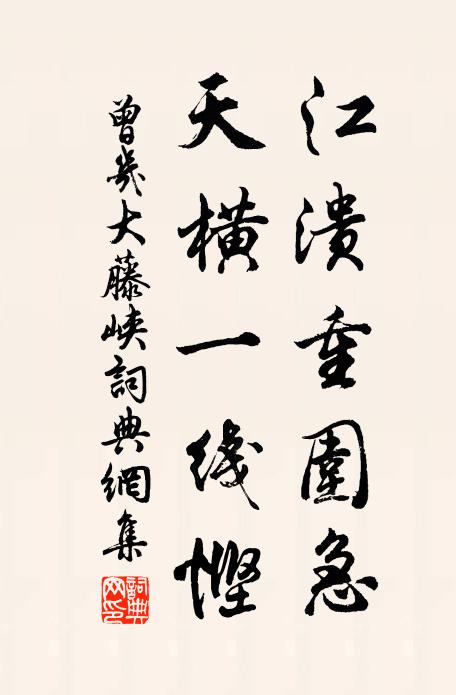 江潰重圍急
天橫一綫慳
曾幾大藤峽詞典網集
詞典網印